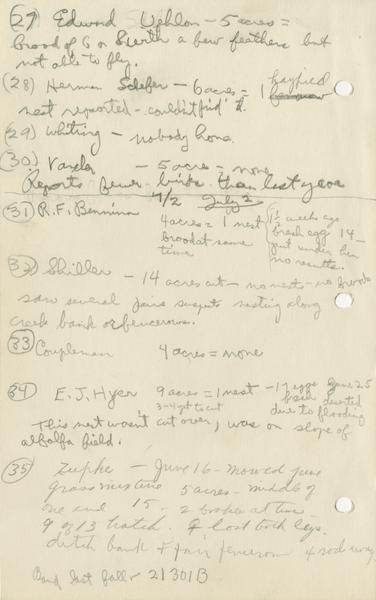 (27) Edward Uehlon - 5 acres =
brood of 6 or 8 with a few feathers but
not able to fly.
(28) Herman Schefer - 6 acres = 1 hayfield
nest reported - couldn't find it.
(29) Whiting - nobody home.
(30) - 5 acre - none
Reports fewer birds than last year
4/2 July 2
(31) R.F. Bennina 4 acres = 1 nest
brood at same
time
1 1/2 weeks ago
fresh egg 14 -
put under hen
no results.
32) Shiller - 14 acres cut - no nests - no broods
saw several pairs suspects nesting along
creek bank or fencerows.
(33) Coupleman 4 acres = none
(34) E.J. Hyer 9 acres = 1 nest - 17 eggs June 25
3-4 yet to cut
deserted
due to flooding
This nest wasn't cut over, was on slope of
alfalfa field.
(35) Zupke - June 16 - mowed June
grass mixture 5 acres - middle of
one end 15 - 2 broken at time -
9 of 13 hatch. lost both legs.
ditch bank & fair fencerow 4 rods away.
Band last fall 21301B